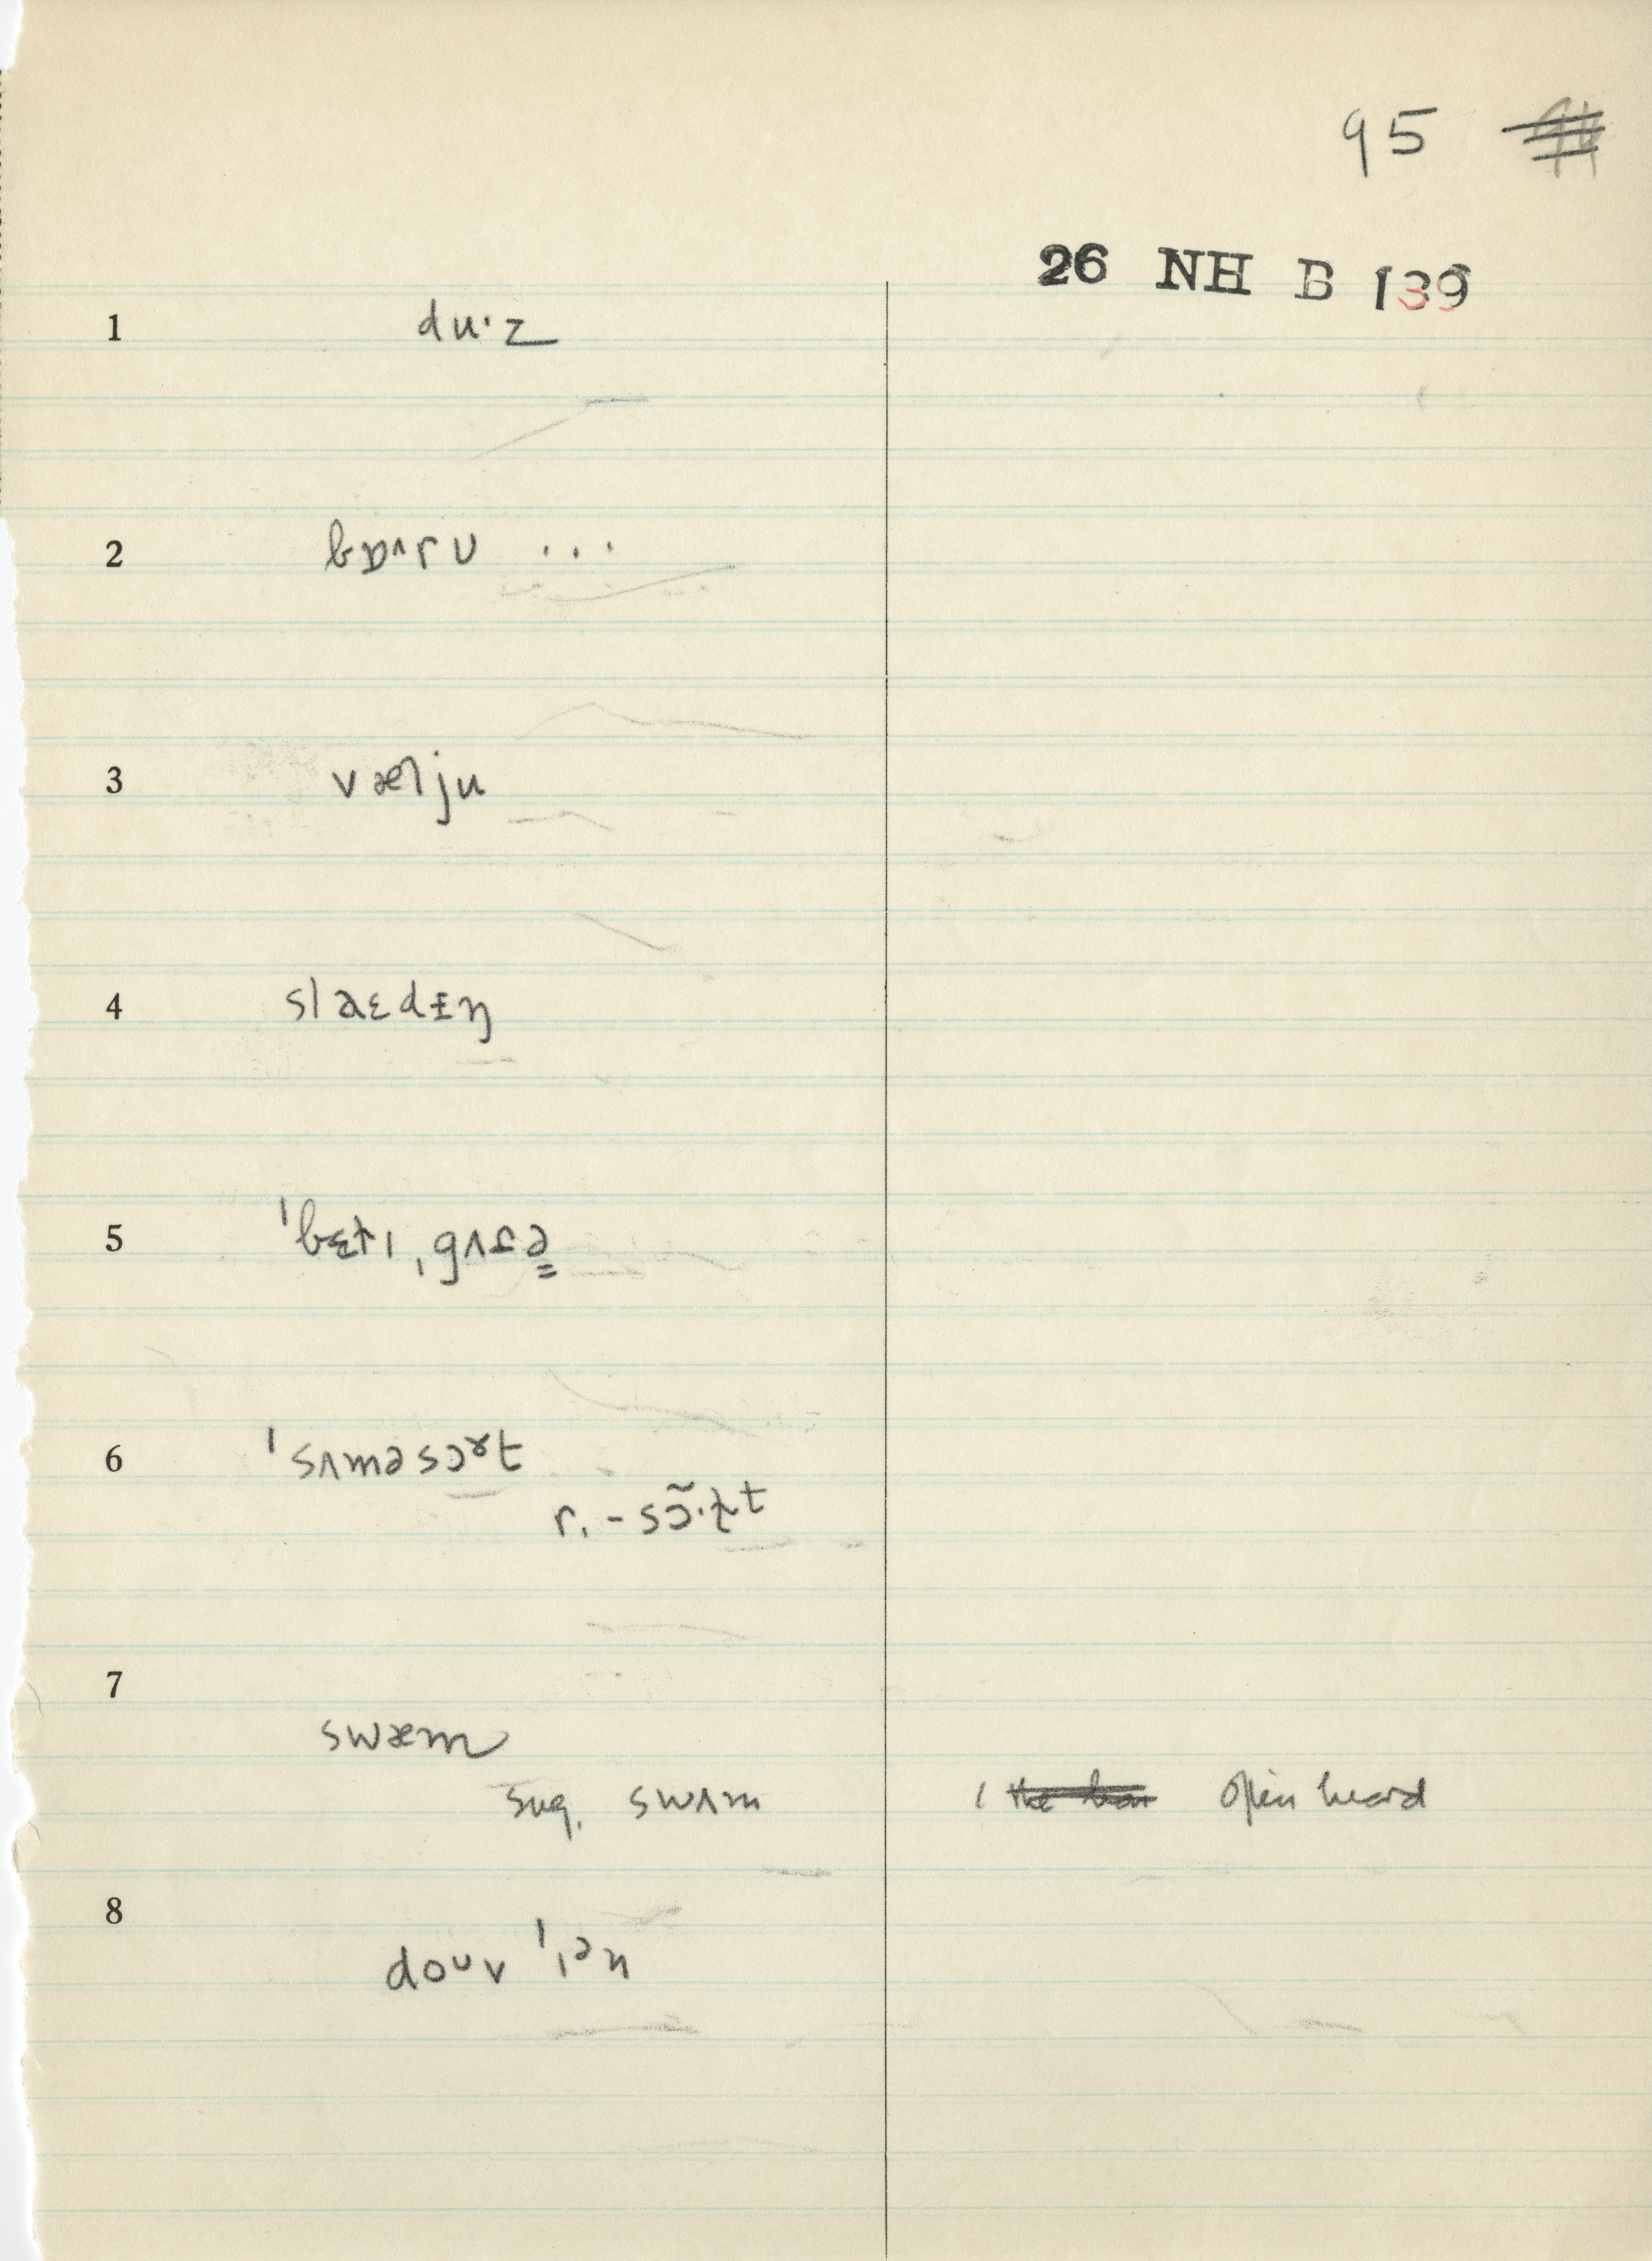 95
26 NH B 139
1 du·z
2 bɒ^ru ...
3 væljᴜ
4 slaɛdɪŋ
5 ˈbɛtɪ ˌgʌſə
6 ˈsʌməsɔɚt
r. - sɔ̃·t
7
swæm
sug. swʌm / often heard
8
doᴜv ˈɪən